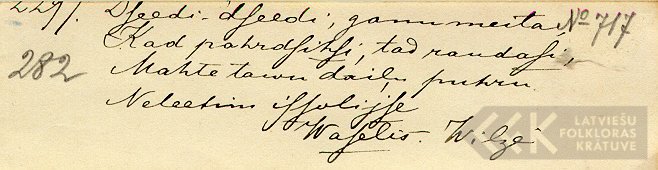 2297. Dseedi-dseedi, ganu meita No 717
Kad pahrdsihsi, tad raudasi,
282 Mahte tawu dailu puhru
Neleetim issolijse
Waselis. Wilzē
LATVIEŠU
FOLKLORAS
KRĀTUVE